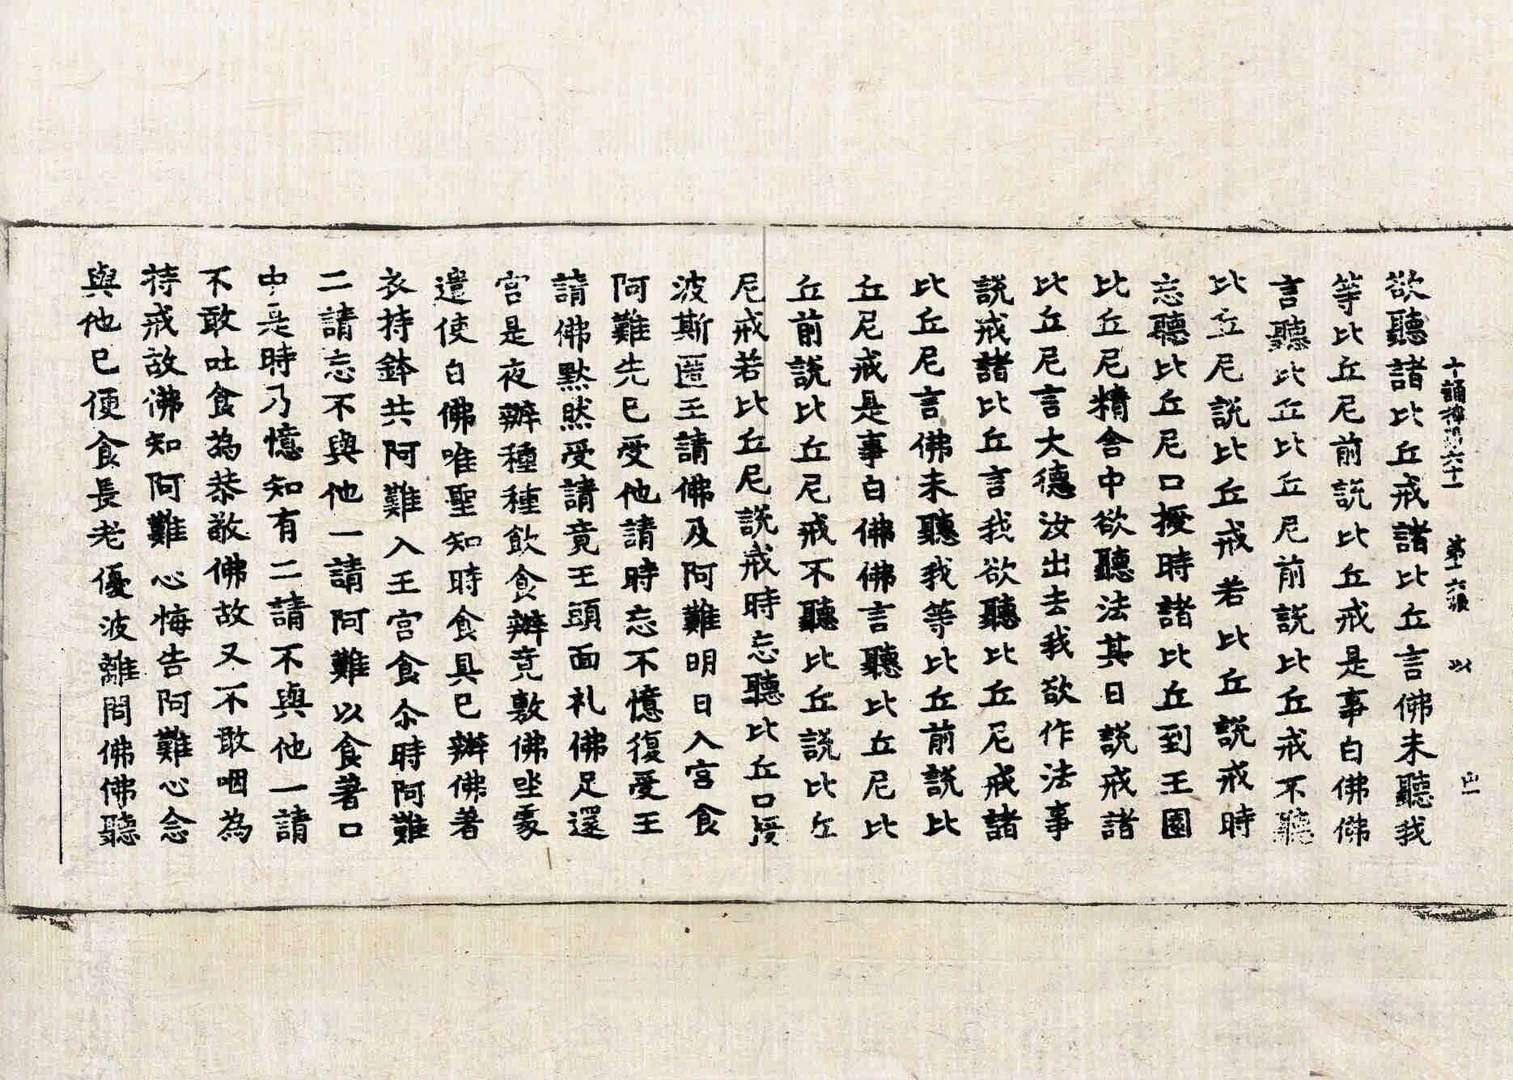 十誦律第六十一 第十六張 以
欲聽諸比丘戒諸比丘言佛未聽我
等比丘尼前說比丘戒是事白佛佛
言聽比丘比丘尼前說比丘戒不聽
比丘尼說比丘戒若比丘說戒時
忘聽比丘尼口授時諸比丘到王園
比丘尼精舍中欲聽法其日說戒諸
比丘尼言大德汝出去我欲作法事
說戒諸比丘言我欲聽比丘尼戒諸
比丘尼言佛未聽我等比丘前說比
丘尼戒是事白佛佛言聽比丘尼比
丘前說比丘尼戒不聽比丘說比丘
尼戒若比丘尼說戒時忘聽比丘口授
波斯匿王請佛及阿難明日入宮食
阿難先已受他請時忘不憶復受王
請佛默然受請竟王頭面礼佛足還
宮是夜辦種種飲食辦竟敷佛坐處
遣使白佛唯聖知時食具已辦佛著
衣持鉢共阿難入王宮食尒時阿難
二請忘不與他一請阿難以食著口
中是時乃憶知有二請不與他一請
不敢吐食為恭敬佛故又不敢咽為
持戒故佛知阿難心悔告阿難心念
與他已便食長老優波離問佛佛聽